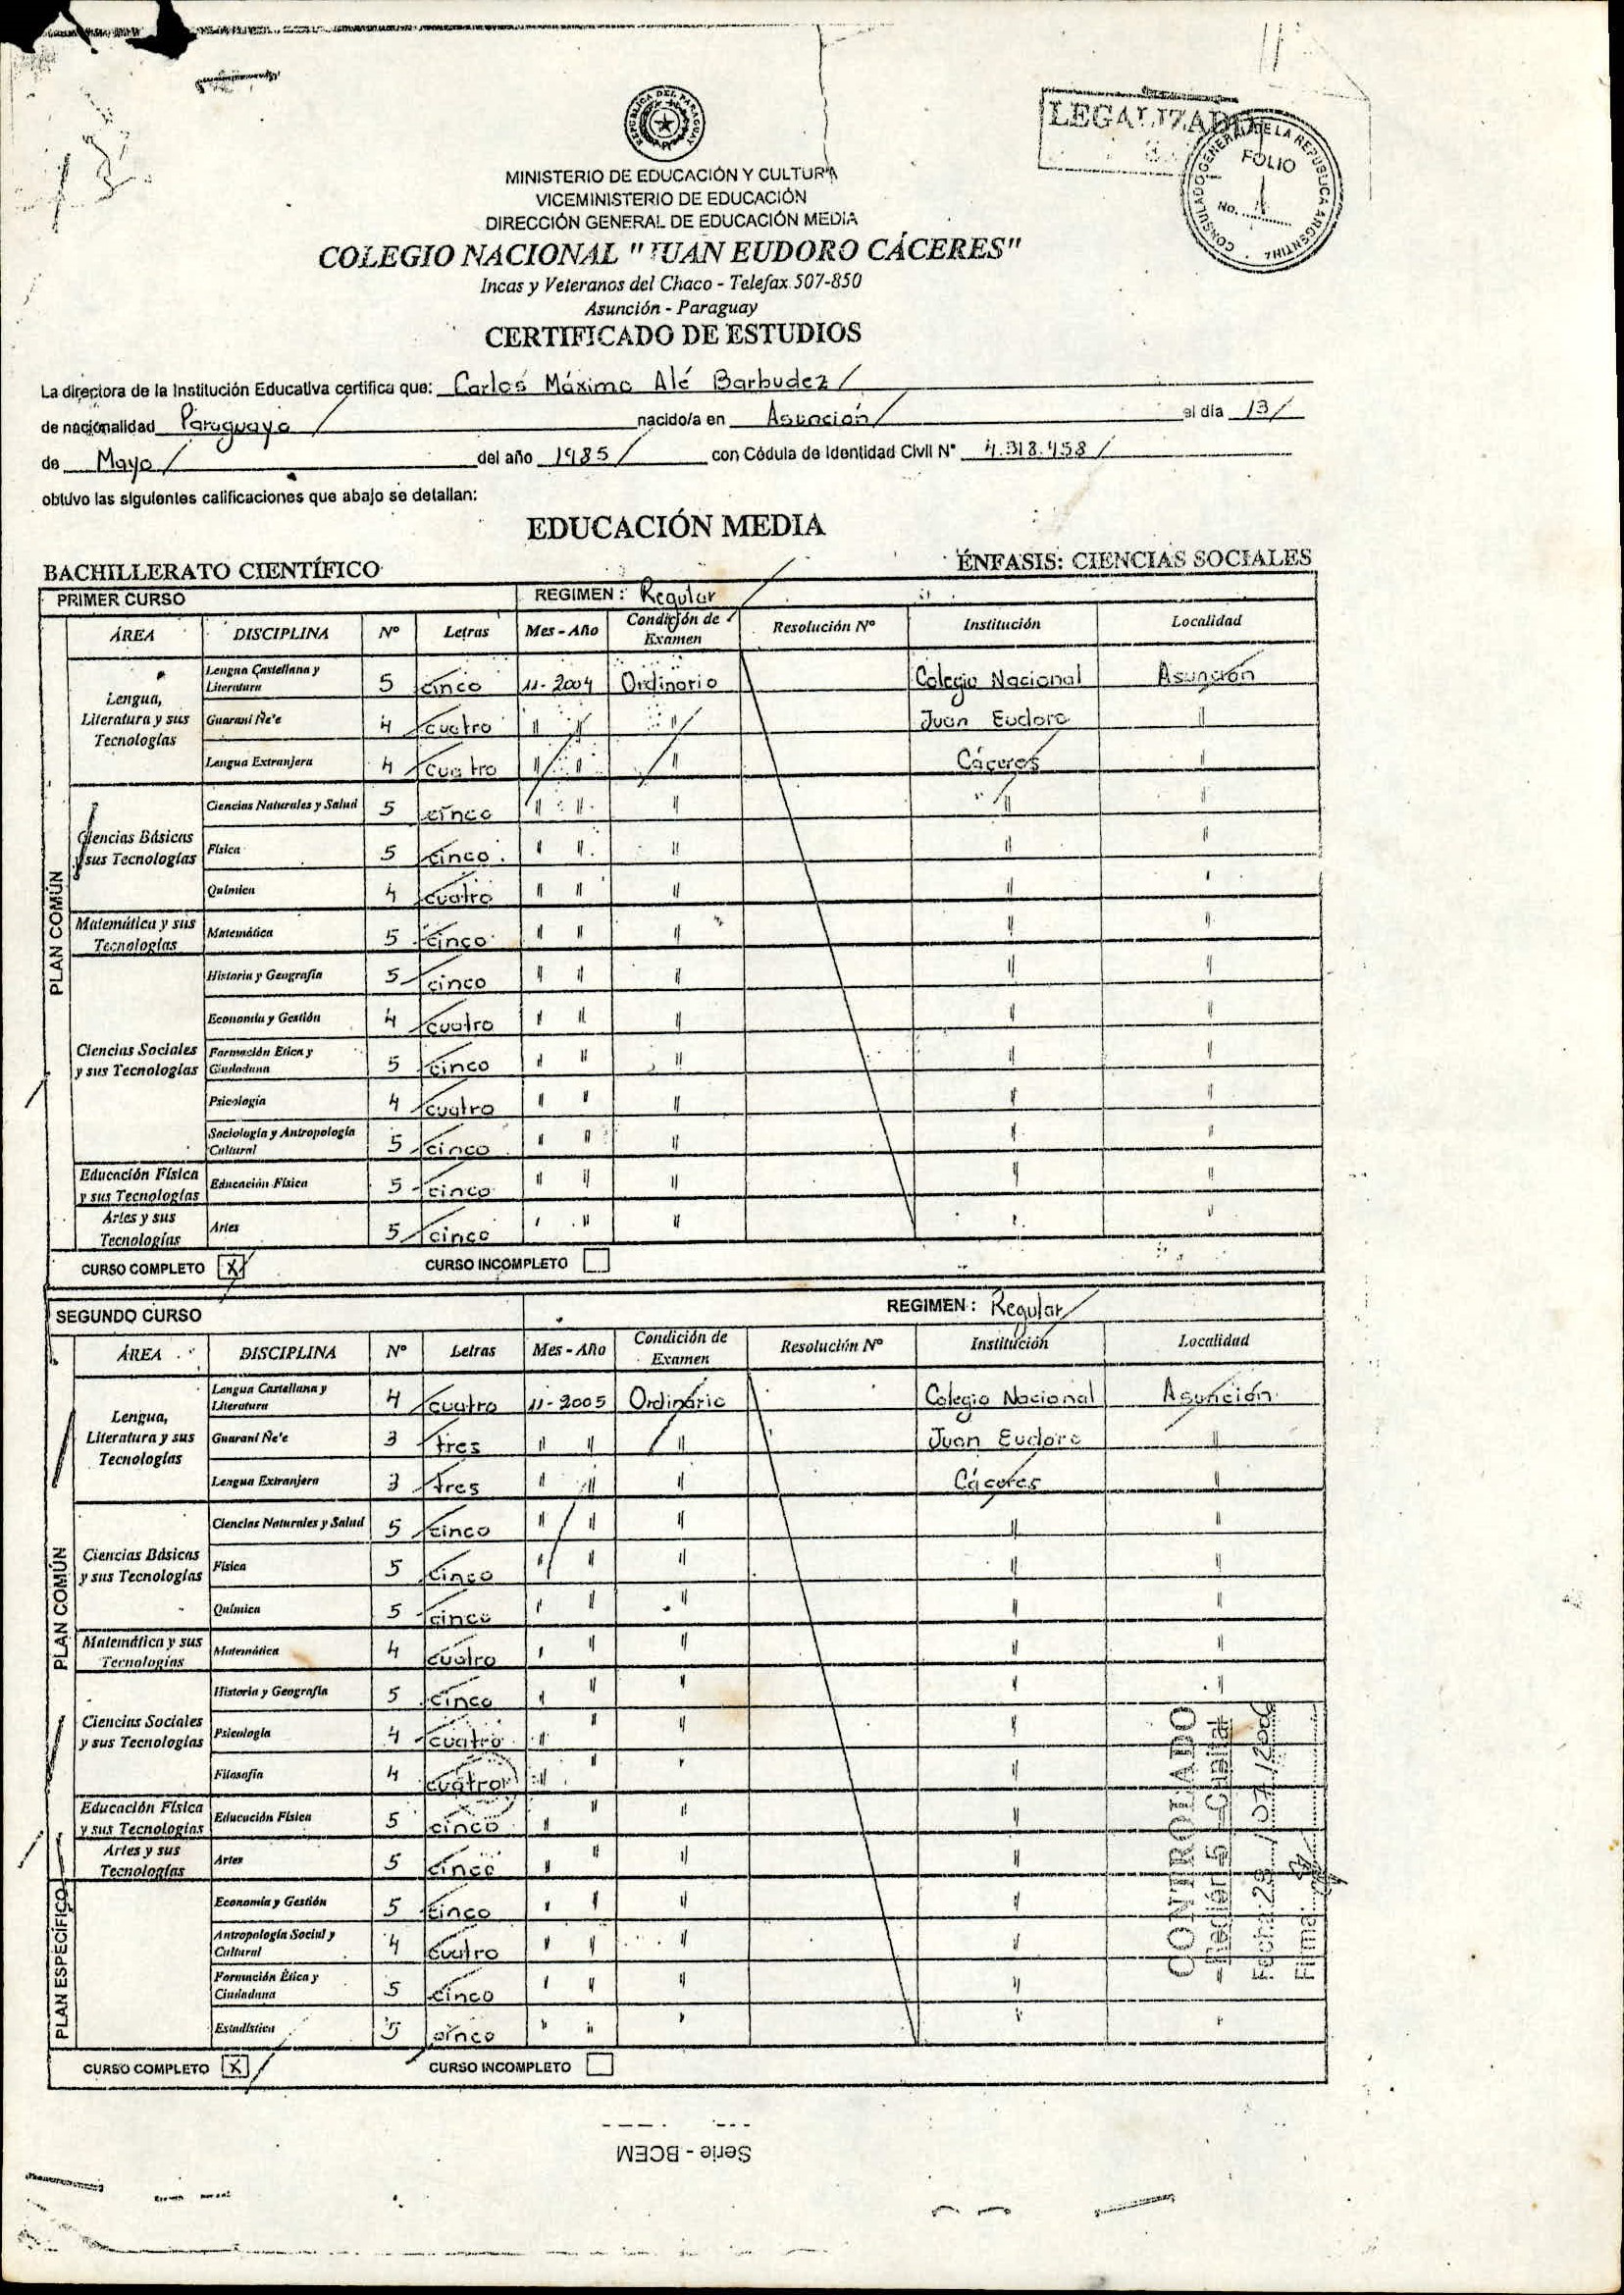 REPUBLICA DEL PARAGUAY
LEGALIZADO
CONSULADO GENERAL DE LA REPUBLICA ARGENTINA
FOLIO
No. 1
MINISTERIO DE EDUCACIÓN Y CULTURA
VICEMINISTERIO DE EDUCACIÓN
DIRECCIÓN GENERAL DE EDUCACIÓN MEDIA
COLEGIO NACIONAL "JUAN EUDORO CÁCERES"
Incas y Veteranos del Chaco - Telefax 507-850
Asunción - Paraguay
CERTIFICADO DE ESTUDIOS
La directora de la Institución Educativa certifica que: Carlos Máximo Alé Barbudez /
de nacionalidad Paraguaya / nacido/a en Asunción / el día 13 /
de Mayo / del año 1985 / con Cédula de Identidad Civil N° 4.318.458 /
obtuvo las siguientes calificaciones que abajo se detallan:
EDUCACIÓN MEDIA
BACHILLERATO CIENTÍFICO ÉNFASIS: CIENCIAS SOCIALES
PRIMER CURSO REGIMEN: Regular
ÁREA DISCIPLINA Nº Letras Mes - Año Condición de Examen Resolución Nº Institución Localidad
PLAN COMÚN
Lengua, Literatura y sus Tecnologías
Lengua Castellana y Literatura 5 cinco 11-2004 Ordinario Colegio Nacional Asunción
Guaraní Ñe'e 4 cuatro " " " Juan Eudoro "
Lengua Extranjera 4 cuatro " " " Cáceres "
Ciencias Básicas y sus Tecnologías
Ciencias Naturales y Salud 5 cinco " " " " "
Física 5 cinco " " " " "
Química 4 cuatro " " " " "
Matemática y sus Tecnologías
Matemática 5 cinco " " " " "
Ciencias Sociales y sus Tecnologías
Historia y Geografía 5 cinco " " " " "
Economía y Gestión 4 cuatro " " " " "
Formación Ética y Ciudadana 5 cinco " " " " "
Psicología 4 cuatro " " " " "
Sociología y Antropología Cultural 5 cinco " " " " "
Educación Física y sus Tecnologías
Educación Física 5 cinco " " " " "
Artes y sus Tecnologías
Artes 5 cinco " " " " "
CURSO COMPLETO X CURSO INCOMPLETO
SEGUNDO CURSO REGIMEN: Regular
ÁREA DISCIPLINA Nº Letras Mes - Año Condición de Examen Resolución Nº Institución Localidad
PLAN COMÚN
Lengua, Literatura y sus Tecnologías
Lengua Castellana y Literatura 4 cuatro 11-2005 Ordinario Colegio Nacional Asunción
Guaraní Ñe'e 3 tres " " " Juan Eudoro "
Lengua Extranjera 3 tres " " " Cáceres "
Ciencias Básicas y sus Tecnologías
Ciencias Naturales y Salud 5 cinco " " " " "
Física 5 cinco " " " " "
Química 5 cinco " " " " "
Matemática y sus Tecnologías
Matemática 4 cuatro " " " " "
Ciencias Sociales y sus Tecnologías
Historia y Geografía 5 cinco " " " " "
Psicología 4 cuatro " " " "
Filosofía 4 cuatro " " " "
Educación Física y sus Tecnologías
Educación Física 5 cinco " " " "
Artes y sus Tecnologías
Artes 5 cinco " " " "
PLAN ESPECÍFICO
Economía y Gestión 5 cinco " " " "
Antropología Social y Cultural 4 cuatro " " " "
Formación Ética y Ciudadana 5 cinco " " " " "
Estadística 5 cinco " " " " "
CURSO COMPLETO X CURSO INCOMPLETO
CONTROLADO
Región 5 - Capital
Fecha: 28 / 07 / 2006
Firma:
Serie - BCEM